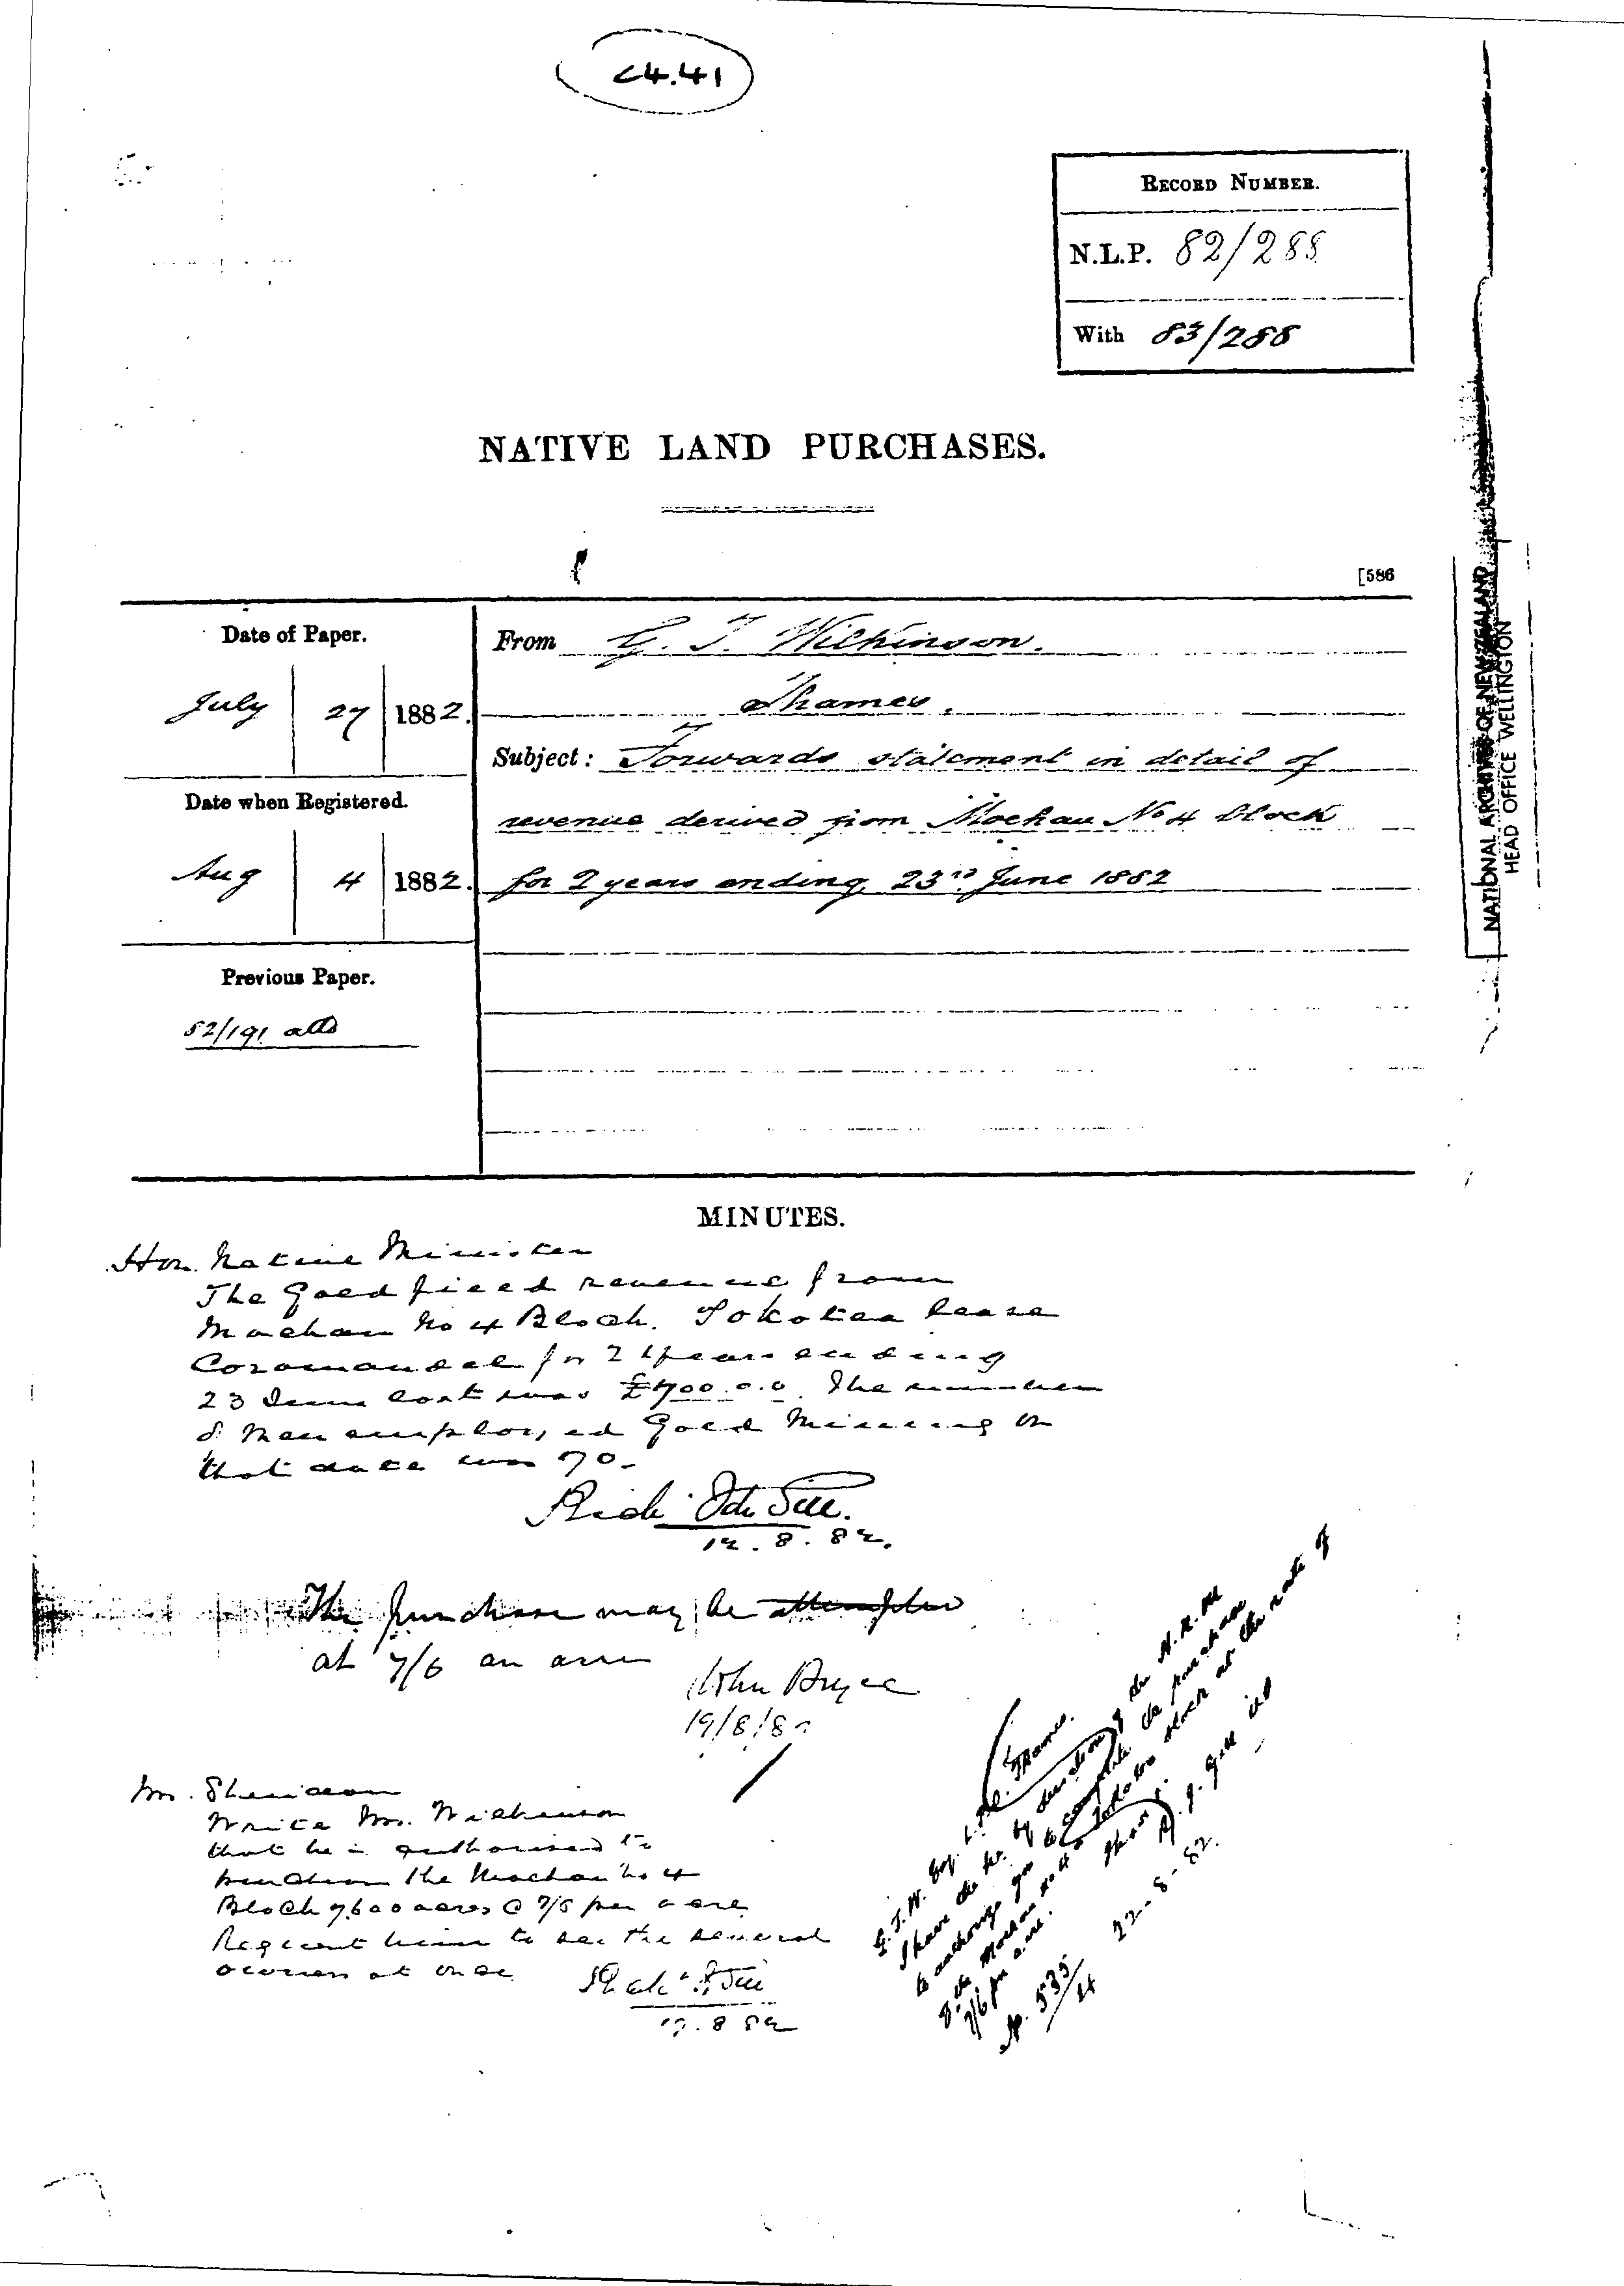 C4.41
RECORD NUMBER.
N.L.P. 82/288
With 83/288
NATIVE LAND PURCHASES.
[586
Date of Paper.
July 27 1882.
Date when Registered.
Aug 4 1882.
Previous Paper.
82/191 attd
From G. T. Wilkinson.
Thames.
Subject: Forwards statement in detail of
revenue derived from Moehau No 4 block
for 2 years ending 23rd June 1882
NATIONAL ARCHIVES OF NEW ZEALAND
HEAD OFFICE WELLINGTON
MINUTES.
Hon. Native Minister
The Goldfield revenue from
Moehau No 4 Block. Tokatea lease
Coromandel for 2 years ending
23 June last was £700.0.0. The number
of men employed Gold Mining on
that date was 70.
12.8.82.
The purchase may be attempted
at 7/6 an acre
John Bryce
19/8/82
Mr. Sheridan
Write Mr. Wilkinson
that he is authorised to
purchase the Moehau No 4
Block 7,600 acres @ 7/6 per acre
Request him to see the several
owners at once
G. T. W. Esq. Thames.
I have the hr. by direction of the H. N. M
to authorize you to complete the purchase
of the Moehau No 4 or Tokatea block at the rate of
7/6 per acre.
22-8-82.
No. 535/4